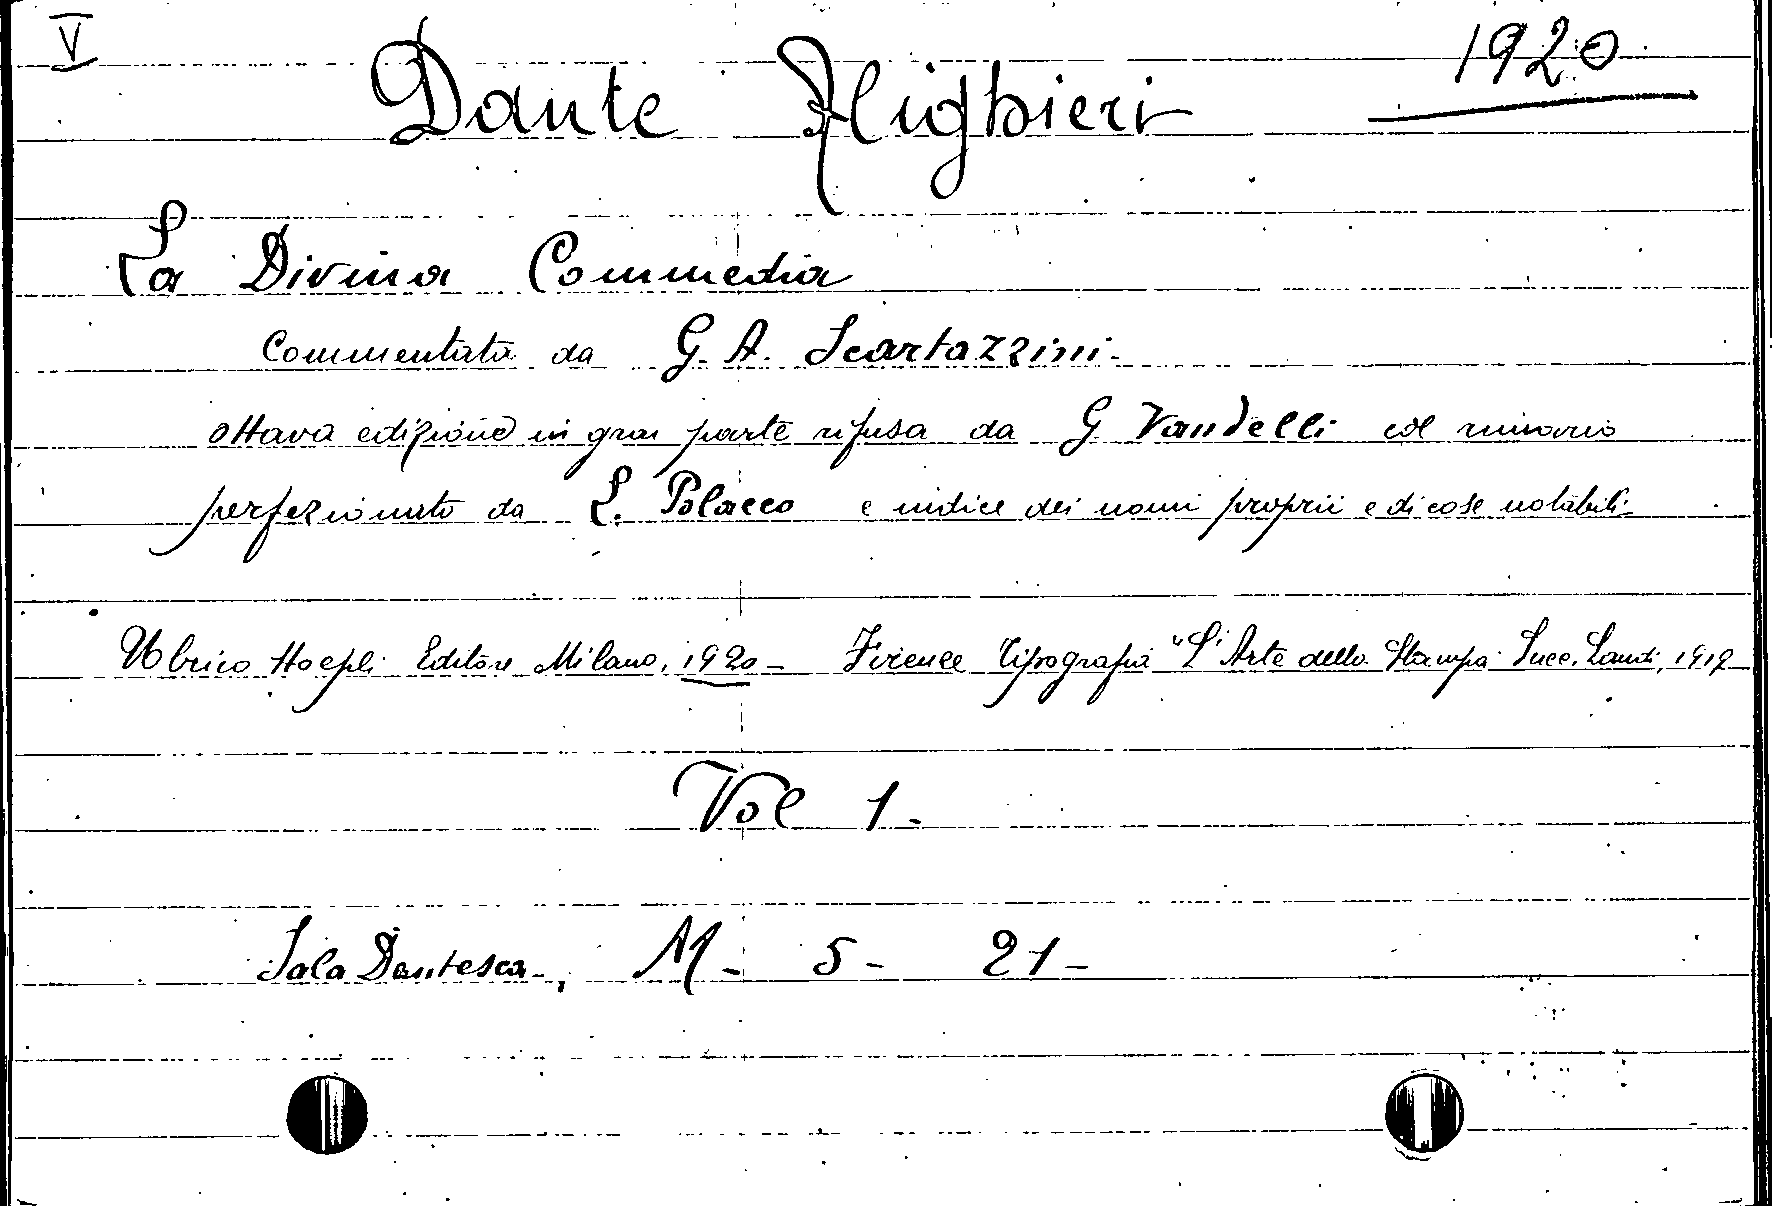 V
1920
Dante Alighieri
La Divina Commedia
Commentata da G. A. Scartazzini.
ottava edizione in gran parte rifusa da G. Vandelli col rimario
perfezionato da L. Polacco e indice dei nomi proprii e di cose notabili.
Ulrico Hoepli Editore Milano, 1920 – Firenze Tipografia "L'Arte della Stampa" Succ. Landi, 1919
Vol 1.
Sala Dantesca, M – 5 – 21 –